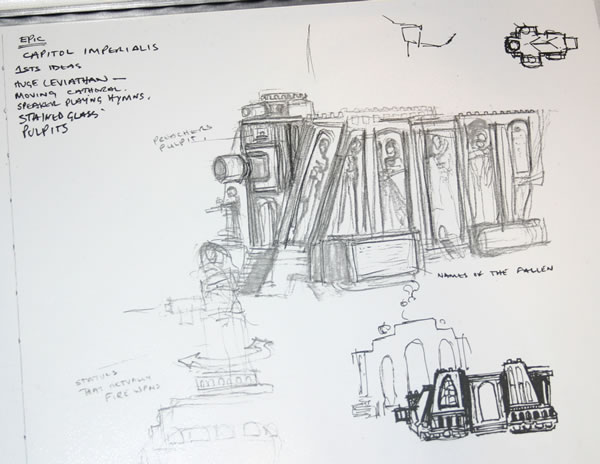 EPIC
CAPITOL IMPERIALIS
1STS IDEAS
HUGE LEVIATHAN —
MOVING CATHEDRAL.
SPEAKER PLAYING HYMNS.
STAINED GLASS
PULPITS
PREACHERS
PULPIT.
NAMES OF THE FALLEN
STATUES
THAT ACTUALLY
FIRE WPNS